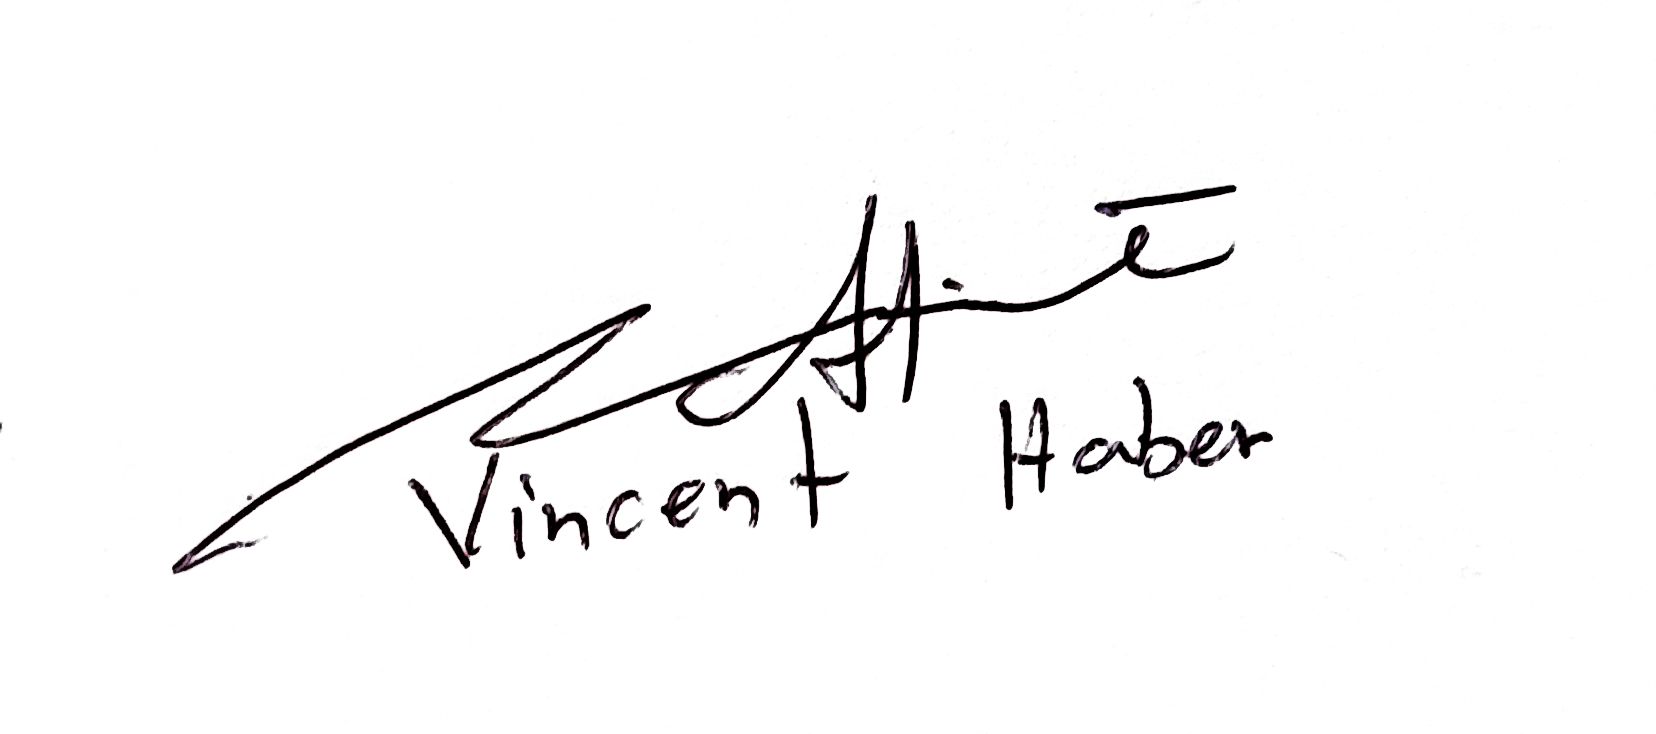 Vincent Haber